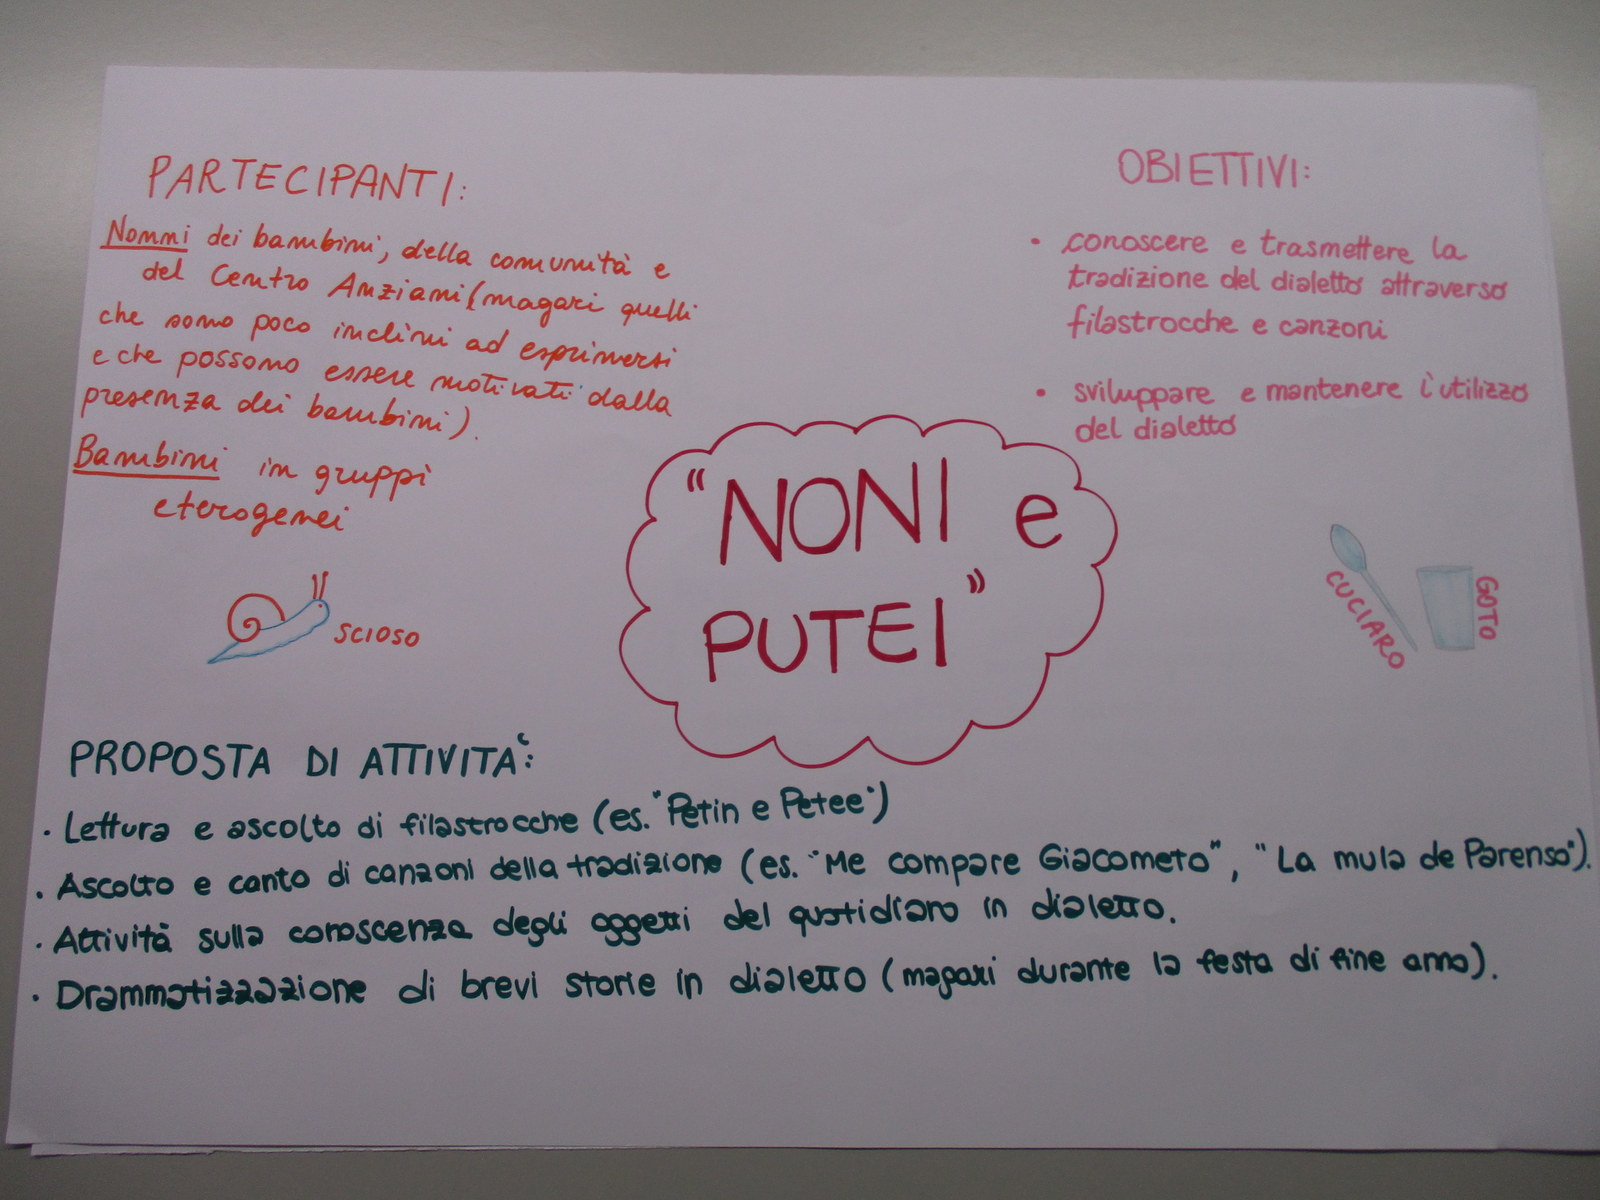 PARTECIPANTI:
Nonni dei bambini, della comunità e
del Centro Anziani (magari quelli
che sono poco inclini ad esprimersi
e che possono essere motivati dalla
presenza dei bambini).
Bambini in gruppi
eterogenei
SCIOSO
OBIETTIVI:
• conoscere e trasmettere la
tradizione del dialetto attraverso
filastrocche e canzoni
• sviluppare e mantenere l'utilizzo
del dialetto
"NONI e
PUTEI"
CUCIARO
GOTO
PROPOSTA DI ATTIVITA':
· Lettura e ascolto di filastrocche (es. "Petin e Petee")
· Ascolto e canto di canzoni della tradizione (es. "Me compare Giacometo", "La mula de Parenso").
· Attività sulla conoscenza degli oggetti del quotidiano in dialetto.
· Drammatizzazione di brevi storie in dialetto (magari durante la festa di fine anno).